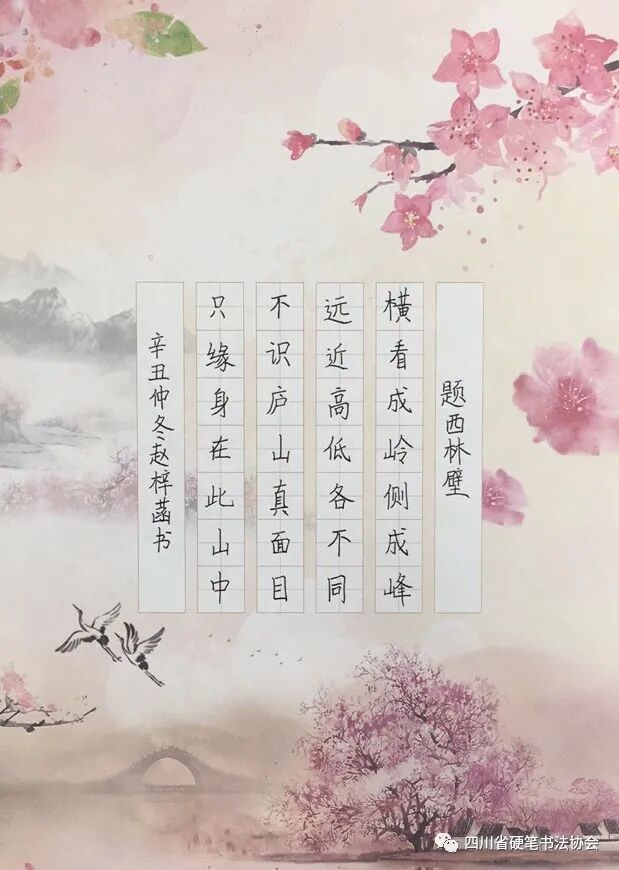 题西林壁
横看成岭侧成峰
远近高低各不同
不识庐山真面目
只缘身在此山中
辛丑仲冬赵梓菡书
四川省硬笔书法协会